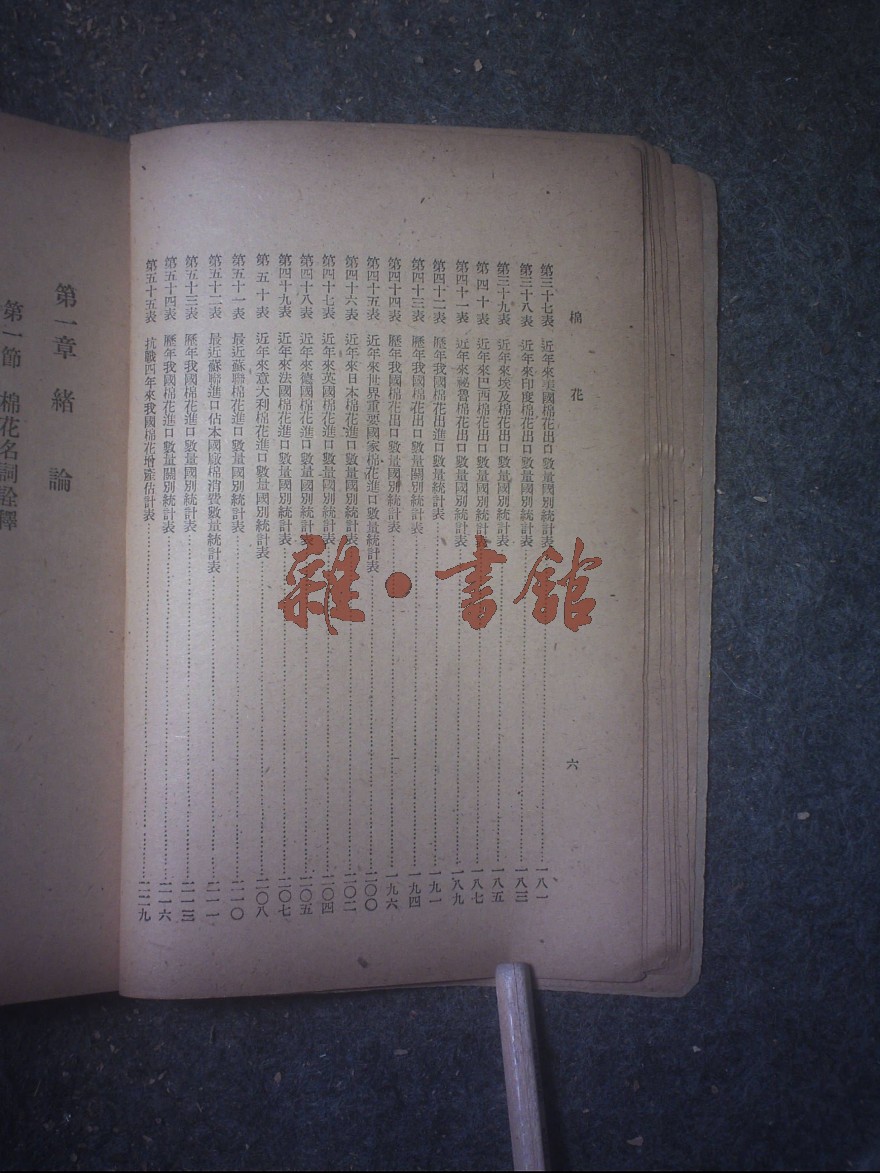 棉花
六
第三十七表 近年來美國棉花出口數量國別統計表 一八一
第三十八表 近年來印度棉花出口數量國別統計表 一八三
第三十九表 近年來埃及棉花出口數量國別統計表 一八五
第四十表 近年來巴西棉花出口數量國別統計表 一八七
第四十一表 近年來祕魯棉花出口數量國別統計表 一八九
第四十二表 歷年我國棉花出進口數量統計表 一九一
第四十三表 歷年我國棉花出口數量關別統計表 一九四
第四十四表 歷年我國棉花出口數量國別統計表 一九六
第四十五表 近年來世界重要國家棉花進口數量統計表 二〇〇
第四十六表 近年來日本棉花進口數量國別統計表 二〇二
第四十七表 近年來英國棉花進口數量國別統計表 二〇四
第四十八表 近年來德國棉花進口數量國別統計表 二〇五
第四十九表 近年來法國棉花進口數量國別統計表 二〇七
第五十表 近年來意大利棉花進口數量國別統計表 二〇八
第五十一表 最近蘇聯棉花進口數量國別統計表 二一〇
第五十二表 最近蘇聯進口佔本國廠棉消費數量統計表 二一一
第五十三表 歷年我國棉花進口數量國別統計表 二一三
第五十四表 歷年我國棉花進口數量關別統計表 二一六
第五十五表 抗戰四年來我國棉花增產估計表 二二九
第一章 緒論
第一節 棉花名詞詮釋
雜·書館